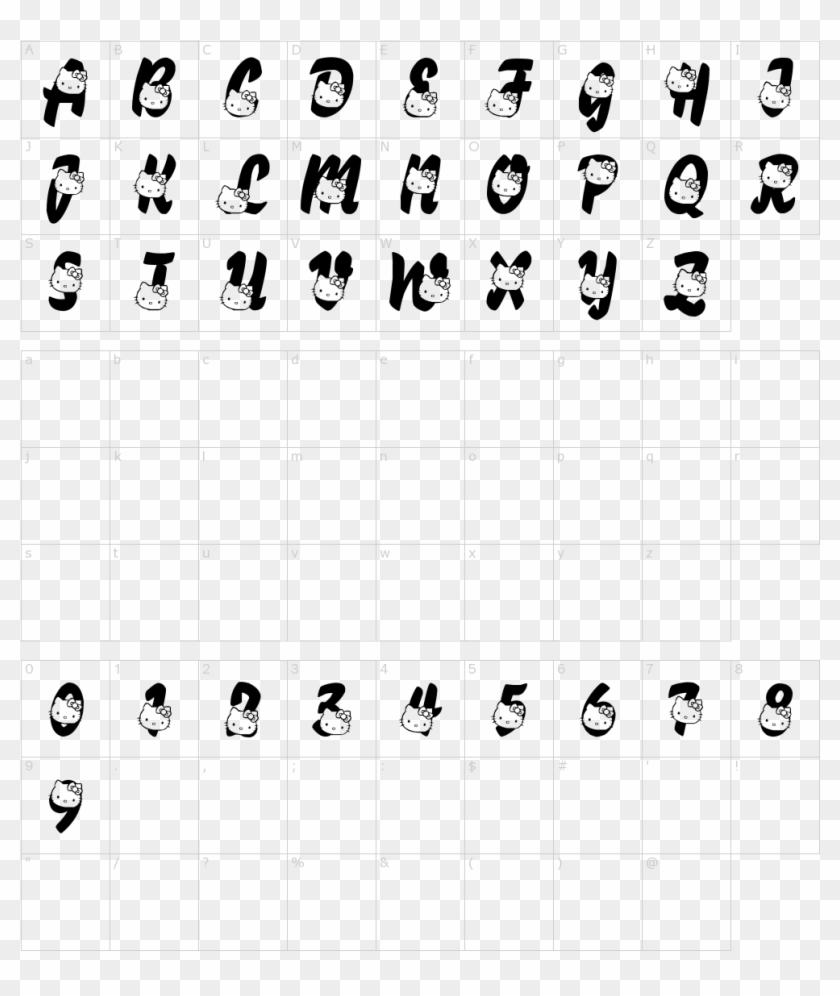 A B C D E F G H I
A B C D E F G H I
J K L M N O P Q R
J K L M N O P Q R
S T U V W X Y Z
S T U V W X Y Z
a b c d e f g h i
j k l m n o p q r
s t u v w x y z
0 1 2 3 4 5 6 7 8
0 1 2 3 4 5 6 7 8
9 . , ; : $ # ' !
9
" / ? % & ( ) @